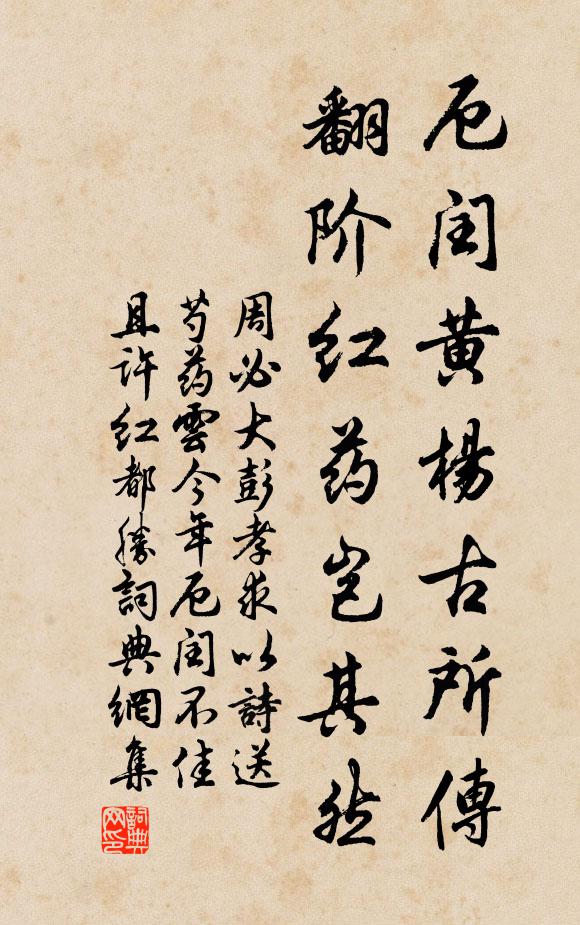 厄闰黄楊古所傳
翻阶红药岂其然
周必大彭孝求以詩送
芍药雲今年厄闰不佳
且许红都勝詞典網集
詞典网印